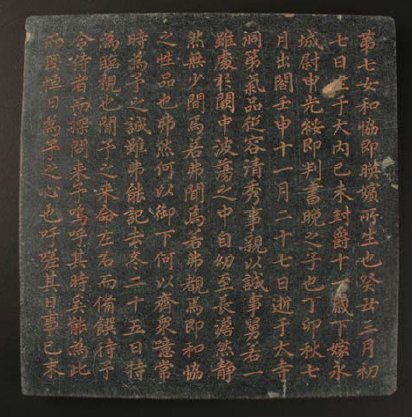 第七女和協即暎嬪所生也癸丑三月初
七日生于大內己未封爵十一歲下嫁永
城尉申光綏即判書晚之子也丁卯秋七
月出閤壬申十一月二十七日逝于大寺
洞第氣品從容清秀事親以誠事舅若一
雖處於闕中波蕩之中自幼至長澹然靜
然無少間焉若弗聞焉若弗覩焉即和協
之性品也弗然何以御下何以齊衆噫常
時為予之誠難弗能記去冬二十五日特
為臨視也聞予之來命左右而備饌待予
令侍者而探問來予嗚呼其時奚能為此
而恒日為予之心也吁嗟其日事已末